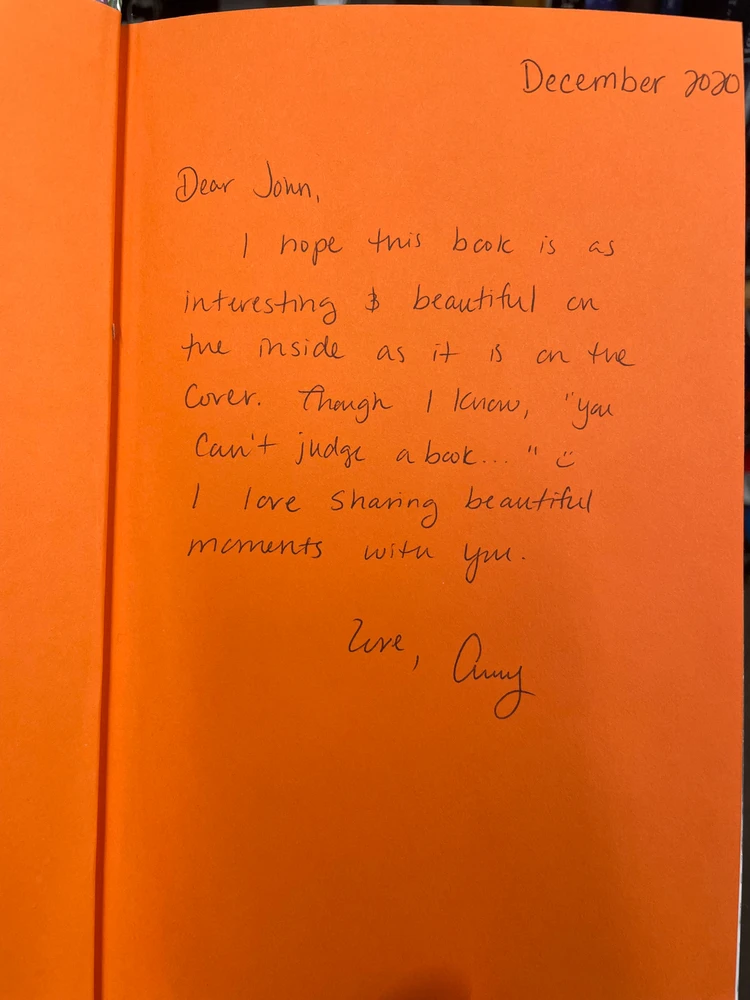 December 2020
Dear John,
I hope this book is as
interesting & beautiful on
the inside as it is on the
cover. Though I know, "you
can't judge a book..." :)
I love sharing beautiful
moments with you.
Love, Amy